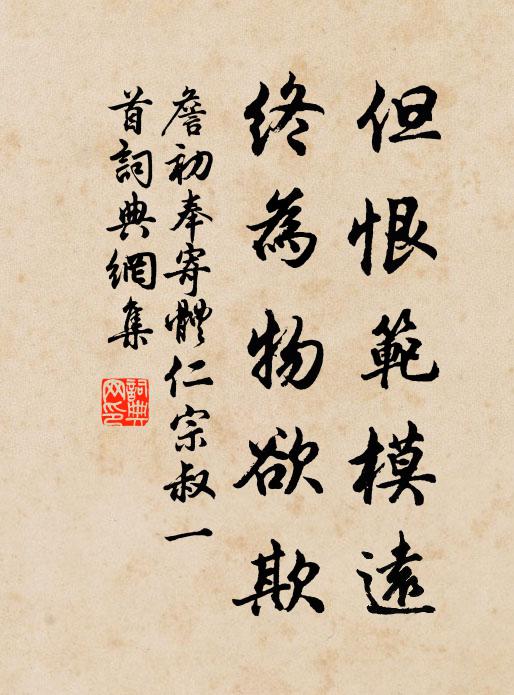 但恨範模遠
終為物欲欺
詹初奉寄體仁宗叔一
首詞典網集
詞典
网印